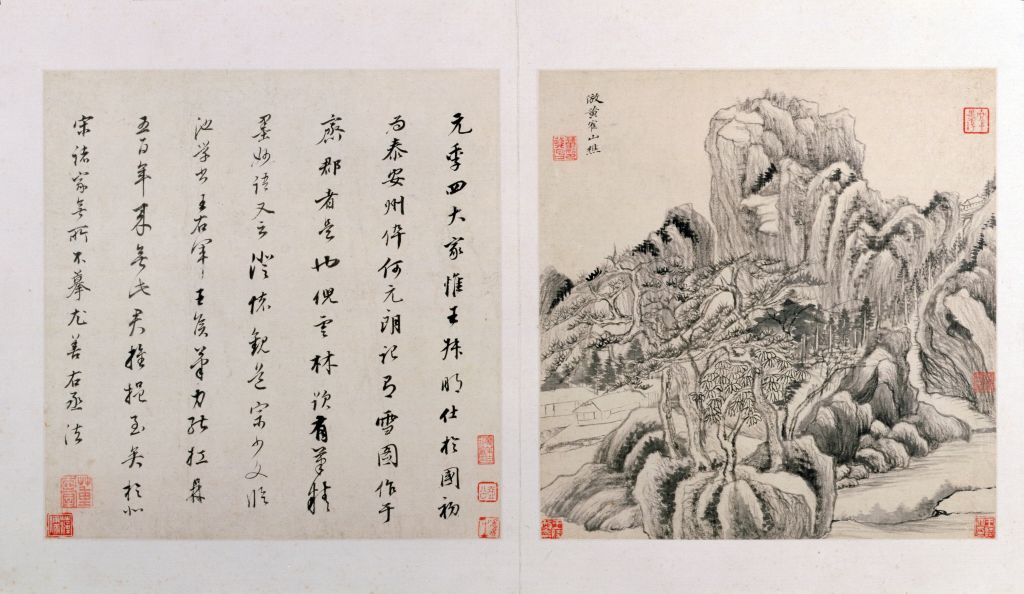 倣黃隺山樵
元季四大家惟王叔明仕於國初
為泰安州倅何元朗記有雪圖作于
齋郡者是也倪雲林跋有筆精
墨妙語又云澄懷觀道宗少文臨
池學書王右軍王侯筆力能扛鼎
五百年來無此君推挹至矣於北
宋諸家無所不摹尤善右丞法